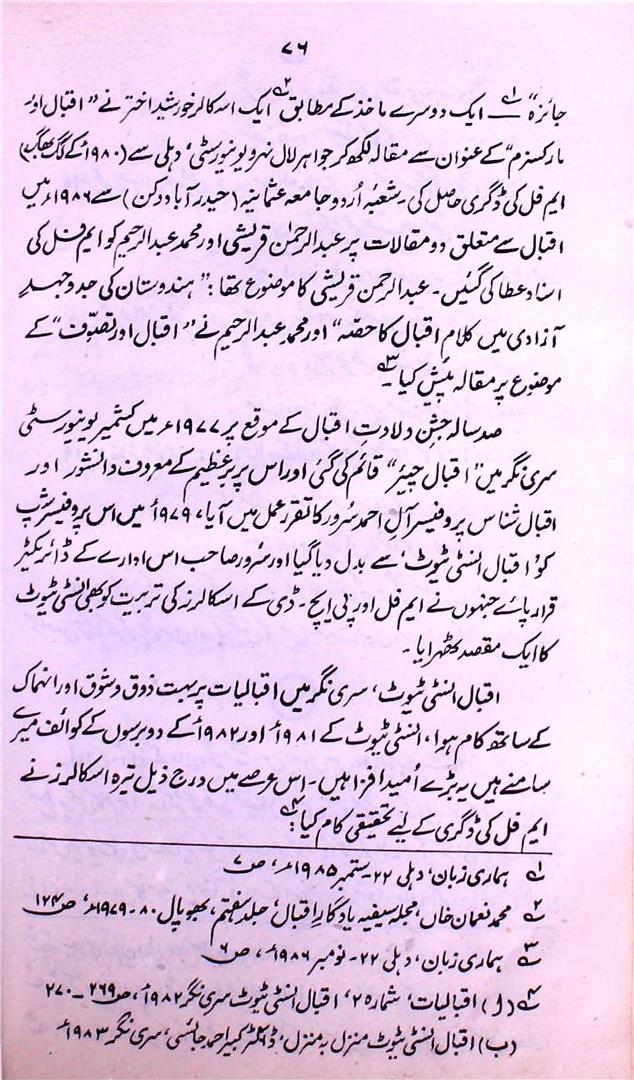 ۷۶
جائزہ“ ؎۱ ایک دوسرے ماخذ کے مطابق ؎۲ ایک اسکالر خورشید اختر نے ”اقبال اور
مارکسزم“ کے عنوان سے مقالہ لکھ کر جواہر لال نہرو یونیورسٹی، دہلی سے (۱۹۸۰ء کے لگ بھگ)
ایم فل کی ڈگری حاصل کی۔ شعبۂ اُردو جامعہ عثمانیہ (حیدر آباد دکن) سے ۱۹۸۶ء میں
اقبال سے متعلق دو مقالات پر عبدالرحمٰن قریشی اور محمد عبدالرحیم کو ایم فل کی
اسناد عطا کی گئیں۔ عبدالرحمن قریشی کا موضوع تھا: ”ہندوستان کی جدوجہدِ
آزادی میں کلامِ اقبال کا حصّہ“ اور محمد عبدالرحیم نے ”اقبال اور تصوّف“ کے
موضوع پر مقالہ پیش کیا۔ ؎۳
صد سالہ جشنِ ولادتِ اقبال کے موقع پر ۱۹۷۷ء میں کشمیر یونیورسٹی
سری نگر میں ”اقبال چیئر“ قائم کی گئی اور اس پر برِّعظیم کے معروف دانشور اور
اقبال شناس پروفیسر آلِ احمد سُرور کا تقرر عمل میں آیا، ۱۹۷۹ء میں اس پروفیسر شپ
کو ’اقبال انسٹی ٹیوٹ‘ سے بدل دیا گیا اور سُرور صاحب اس ادارے کے ڈائریکٹر
قرار پائے جنہوں نے ایم فل اور پی ایچ۔ ڈی کے اسکالرز کی تربیت کو بھی انسٹی ٹیوٹ
کا ایک مقصد ٹھہرایا۔
اقبال انسٹی ٹیوٹ، سری نگر میں اقبالیات پر بہت ذوق و شوق اور انہماک
کے ساتھ کام ہوا، انسٹی ٹیوٹ کے ۱۹۸۱ء اور ۱۹۸۲ء کے دو برسوں کے کوائف میرے
سامنے ہیں یہ بڑے اُمید افزا ہیں۔ اس عرصے میں درج ذیل تیرہ اسکالرز نے
ایم فل کی ڈگری کے لیے تحقیقی کام کیا ؎۴:
؎۱ ہماری زبان، دہلی ۲۲۔ ستمبر ۱۹۸۵ء، ص ۷
؎۲ محمد نعمان خاں، مجلہ سیفیہ یادگارِ اقبال، جلد ہفتم، بھوپال ۸۰۔۱۹۷۹ء، ص ۱۲۴
؎۳ ہماری زبان، دہلی ۲۲۔ نومبر ۱۹۸۶ء، ص ۶
؎۴ (ا) اقبالیات، شمارہ ۲، اقبال انسٹی ٹیوٹ سری نگر ۱۹۸۲ء، ص ۲۶۹۔۲۷۰
(ب) اقبال انسٹی ٹیوٹ منزل بہ منزل، ڈاکٹر کبیر احمد جائسی، سری نگر ۱۹۸۳ء